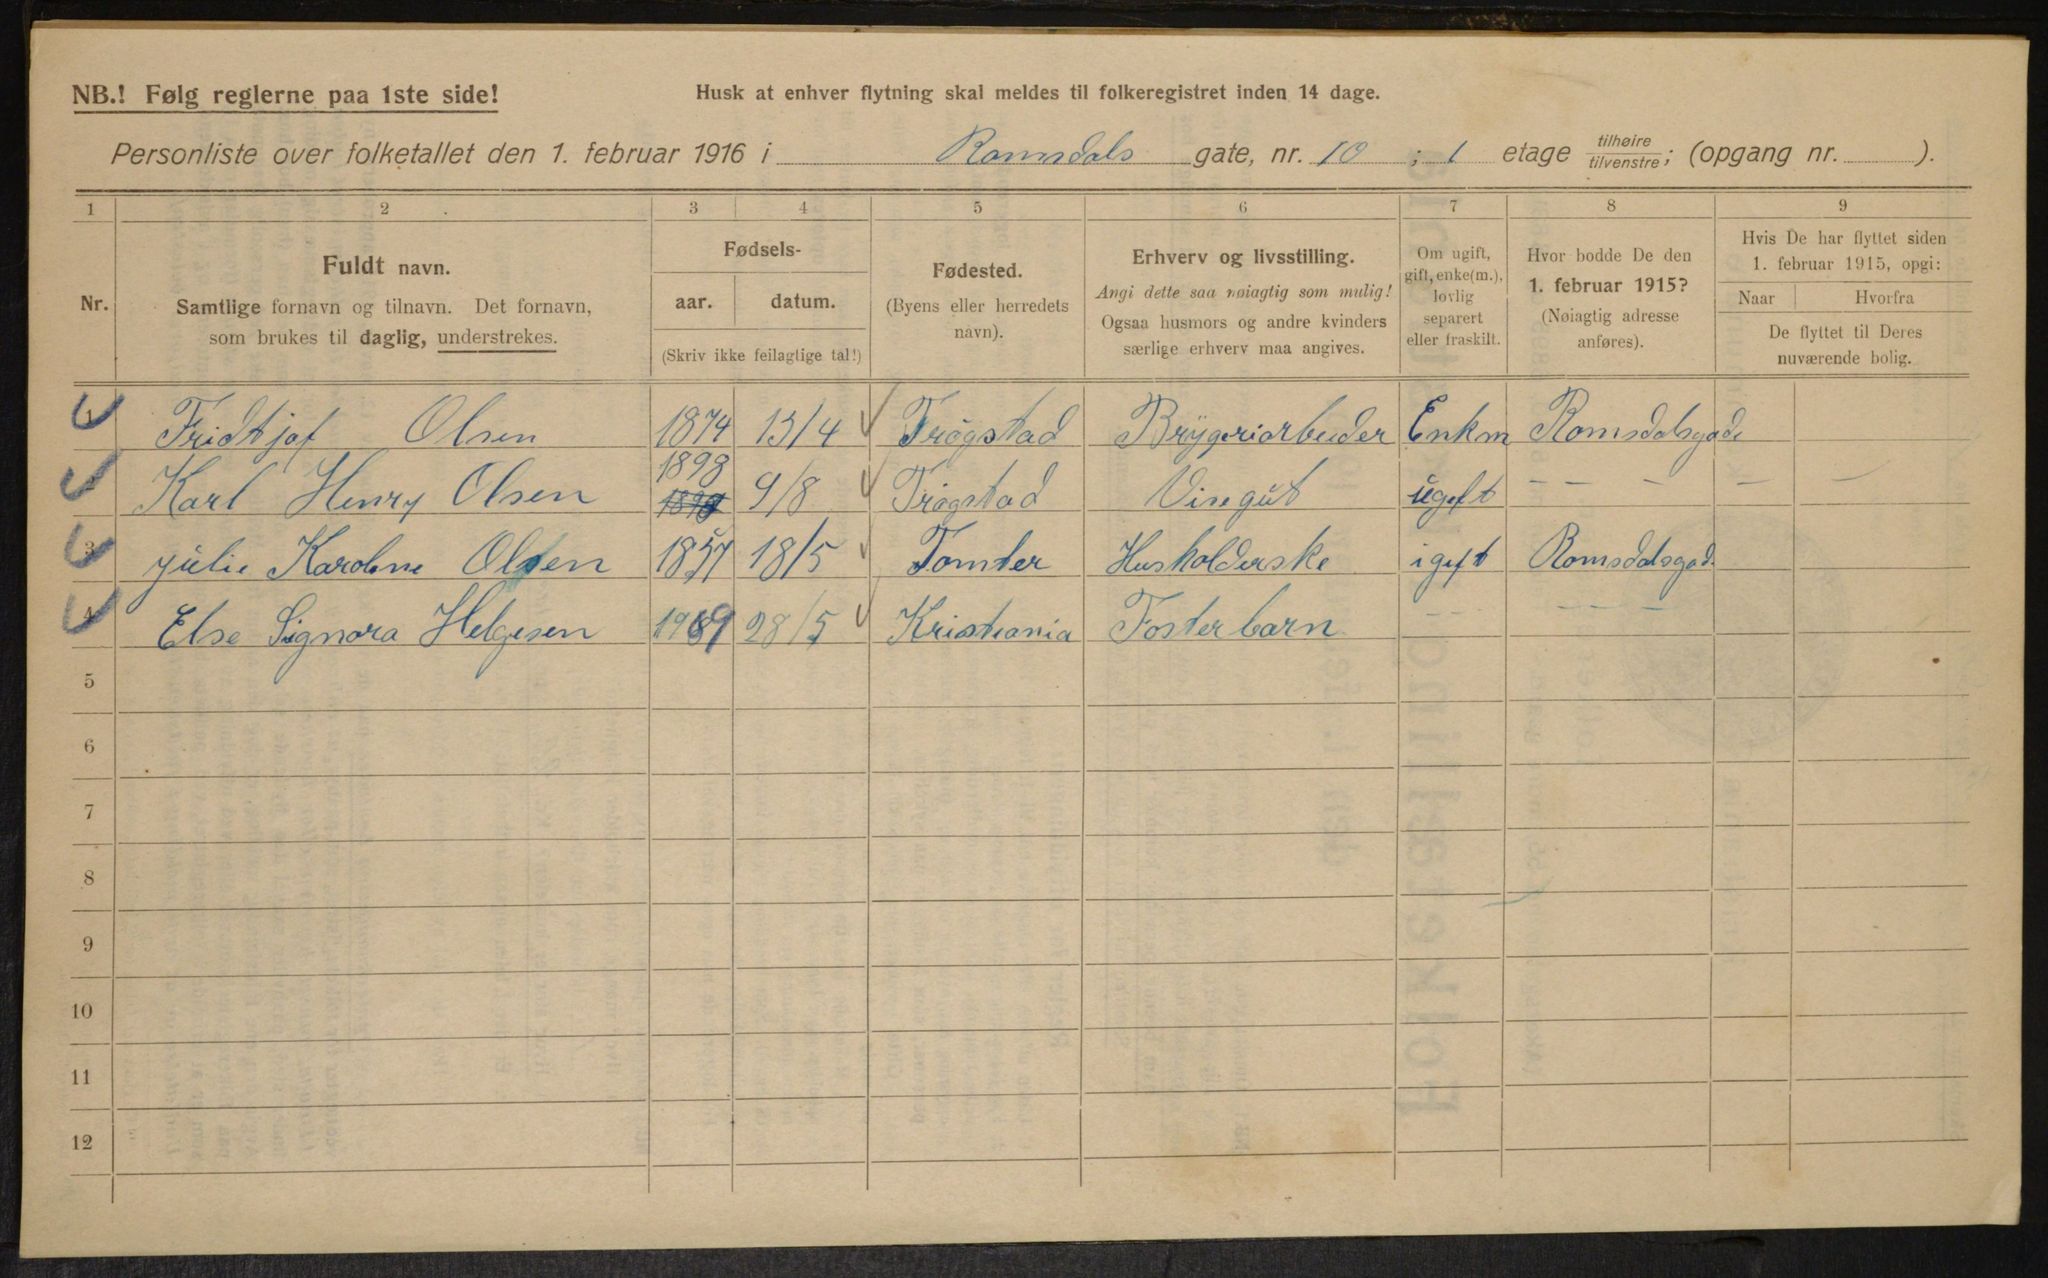 NB.! Følg reglerne paa 1ste side!
Husk at enhver flytning skal meldes til folkeregistret inden 14 dage.
Personliste over folketallet den 1. februar 1916 i Romsdals gate, nr. 10 ; 1 etage tilhøire/tilvenstre; (opgang nr. ).
1 2 3 4 5 6 7 8 9
Nr.
Fuldt navn.
Samtlige fornavn og tilnavn. Det fornavn,
som brukes til daglig, understrekes.
Fødsels-
aar. datum.
(Skriv ikke feilagtige tal!)
Fødested.
(Byens eller herredets
navn).
Erhverv og livsstilling.
Angi dette saa nøiagtig som mulig!
Ogsaa husmors og andre kvinders
særlige erhverv maa angives.
Om ugift,
gift, enke(m.),
lovlig
separert
eller fraskilt.
Hvor bodde De den
1. februar 1915?
(Nøiagtig adresse
anføres).
Hvis De har flyttet siden
1. februar 1915, opgi:
Naar Hvorfra
De flyttet til Deres
nuværende bolig.
1 Fridtjof Olsen 1874 13/4 Trøgstad Brygeriarbeider Enkm Romsdalsgade
2 Karl Henry Olsen 1898 9/8 Trøgstad Visegut ugeft — — — — — —
3 Julie Karoline Olsen 1857 18/5 Tomter Husholderske igeft Romsdalsgad.
4 Else Signora Helgesen 1909 28/5 Kristiania Fosterbarn — — — — — —
5
6
7
8
9
10
11
12